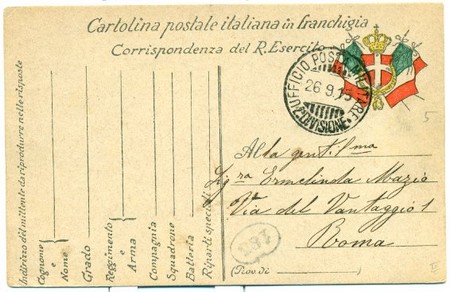 Cartolina postale italiana in franchigia
Corrispondenza del R. Esercito
UFFICIO POSTA MILITARE
26.9.15
DIVISIONE
Alla gent.ma
Sig.ra Ermelinda Mazio
Via del Vantaggio 1
Roma
(Prov. di
Indirizzo del mittente da riprodurre nelle risposte
Cognome e Nome
Grado
Reggimento e Arma
Compagnia
Squadrone
Batteria
Riparti speciali